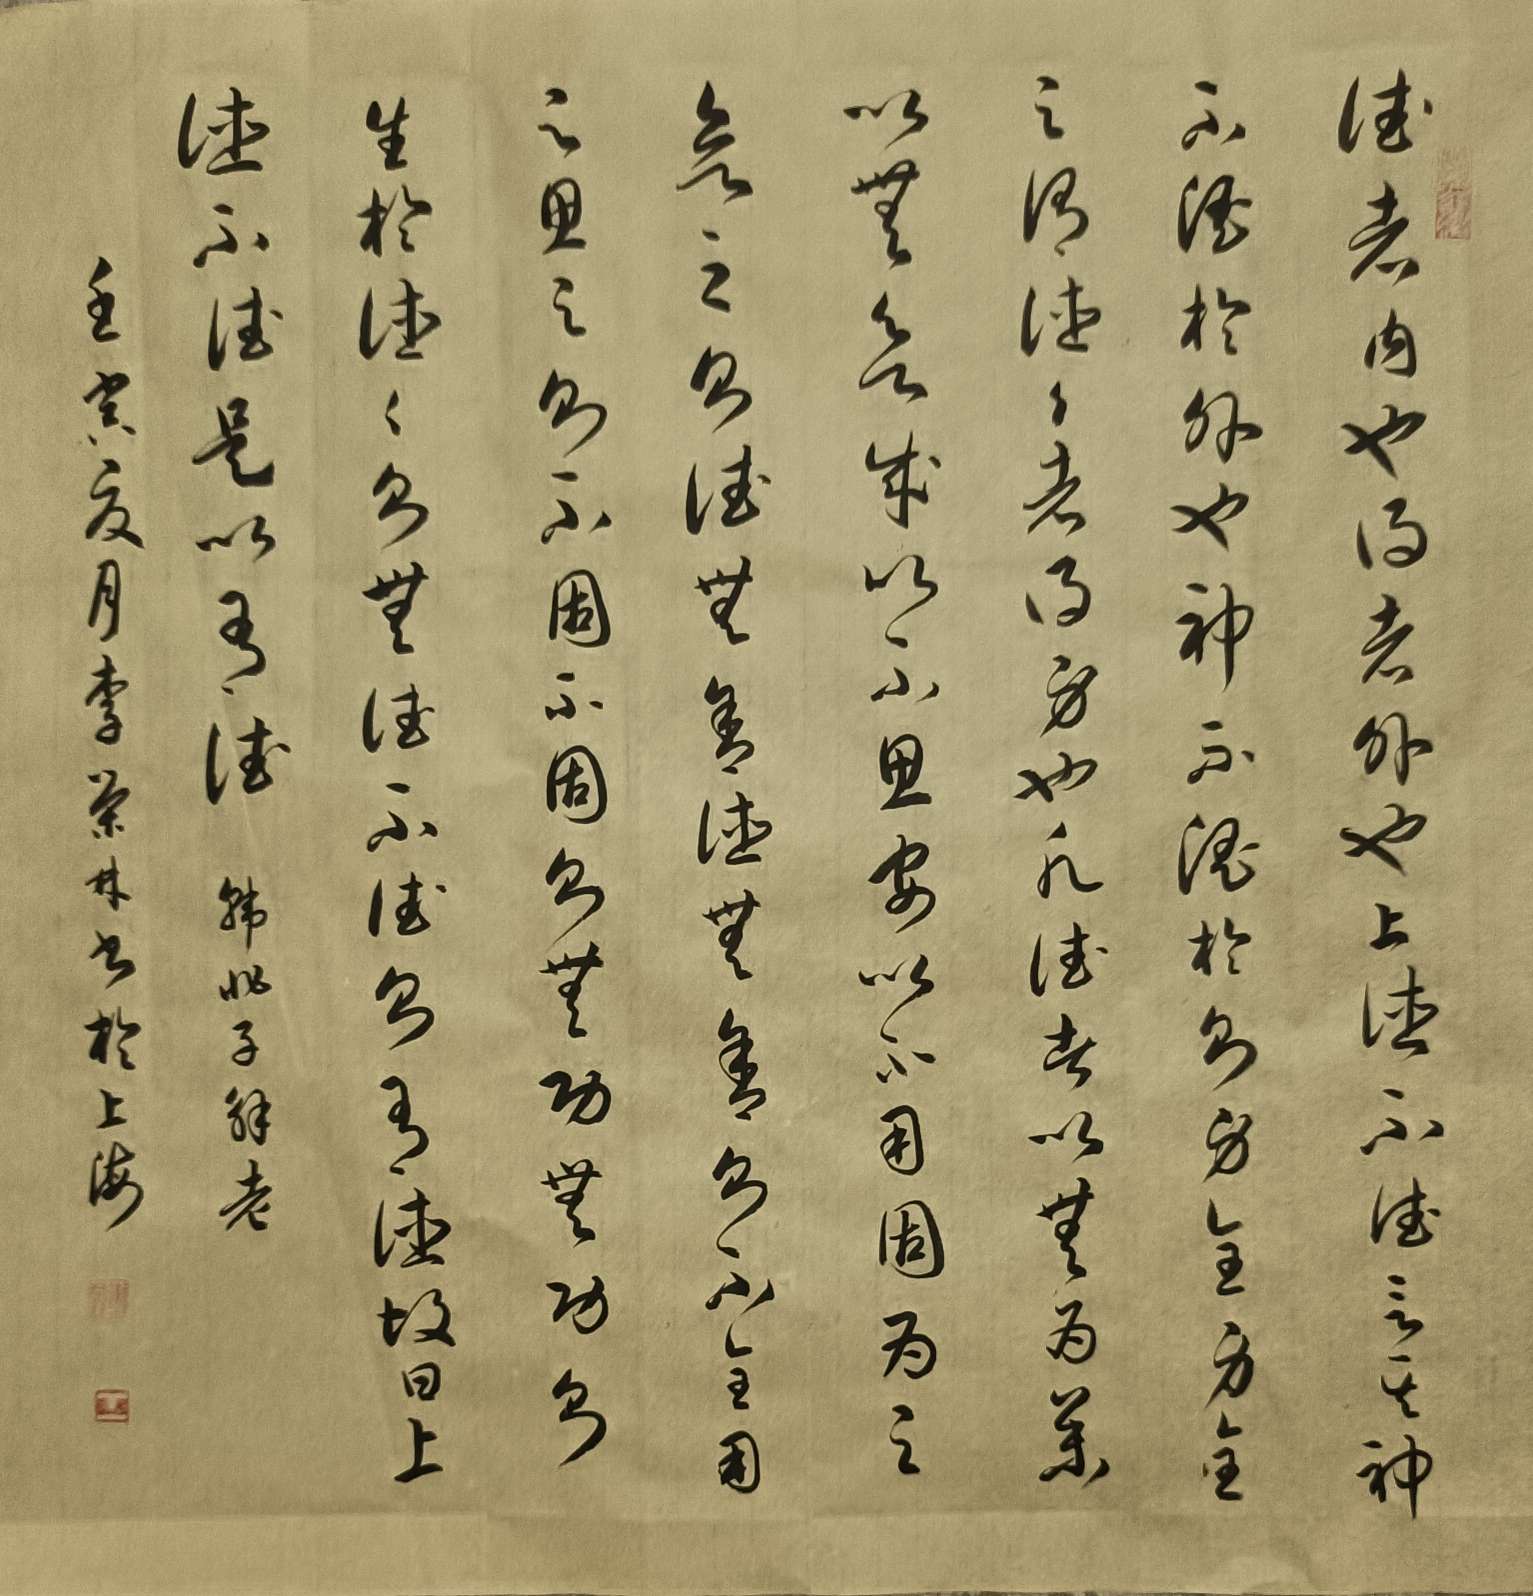 德者内也得者外也上德不德言其神
不淫於外也神不淫於則身全身全
之謂德々者得身也凡德者以無為集
以無欲成以不思安以不用固為之
欲之則德無舍德無舍則不全用
之思之則不固不固則無功無功則
生於德々則無德不德則有德故曰上
德不德是以有德 韓非子解老
壬寅夏月李榮林書於上海